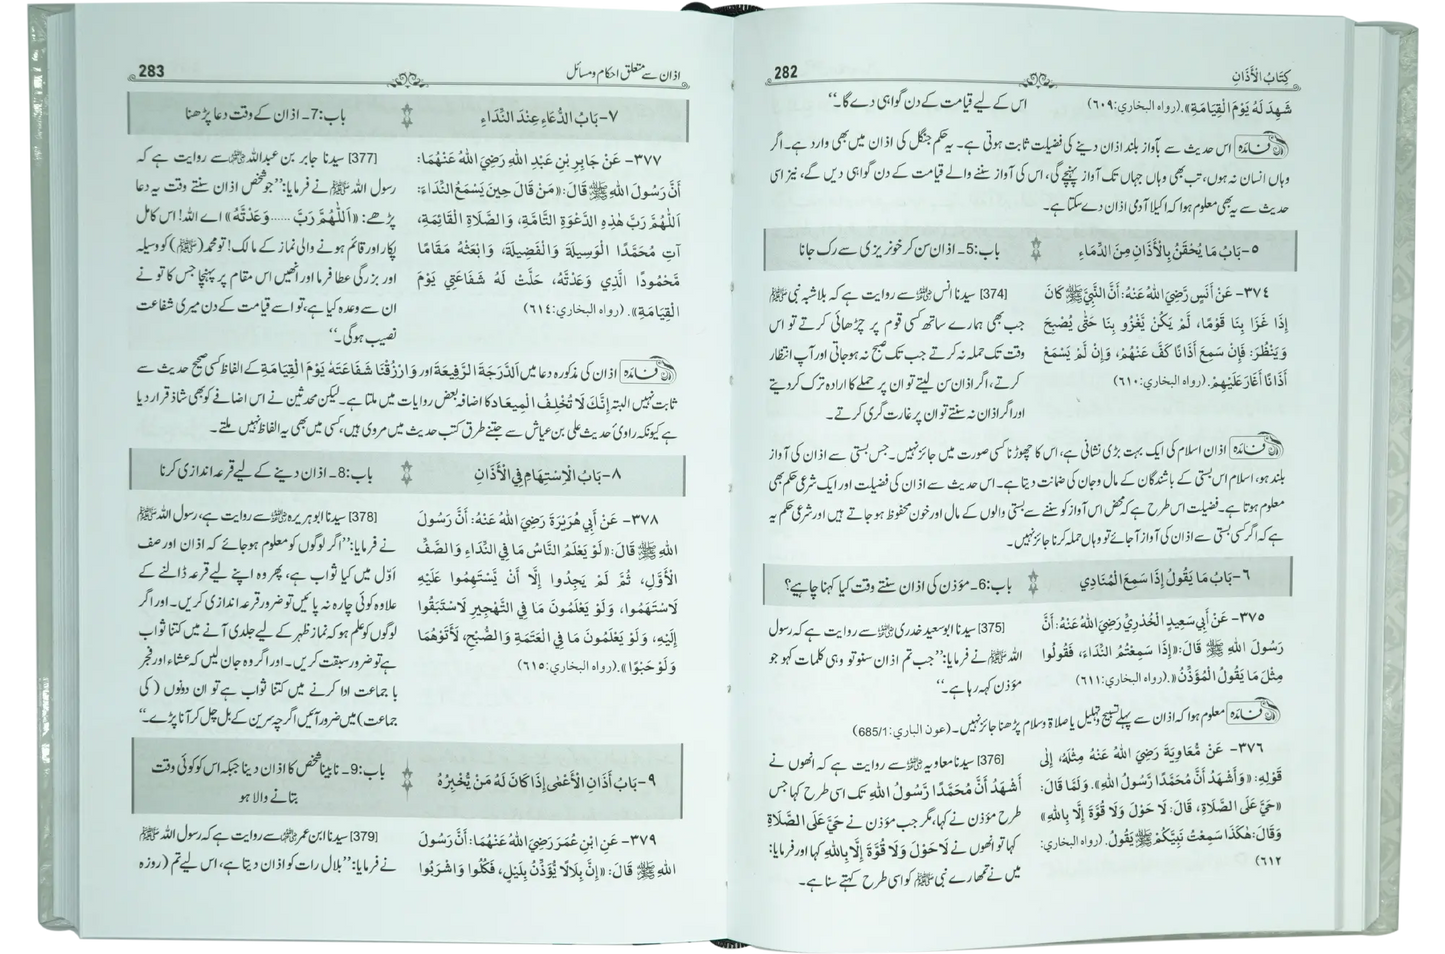 282
كِتَابُ الْأَذَانِ
شَهِدَ لَهُ يَوْمَ الْقِيَامَةِ». (رواه البخاري: ٦٠٩)
اس کے لیے قیامت کے دن گواہی دے گا۔‘‘
فائدہ اس حدیث سے بآواز بلند اذان دینے کی فضیلت ثابت ہوتی ہے۔ یہ حکم جنگل کی اذان میں بھی وارد ہے۔ اگر
وہاں انسان نہ ہوں، تب بھی وہاں جہاں تک آواز پہنچے گی، اس کی آواز سننے والے قیامت کے دن گواہی دیں گے، نیز اسی
حدیث سے یہ بھی معلوم ہوا کہ اکیلا آدمی اذان دے سکتا ہے۔
٥- بَابُ مَا يُحْقَنُ بِالْأَذَانِ مِنَ الدِّمَاءِ
باب:5۔ اذان سن کر خونریزی سے رک جانا
٣٧٤- عَنْ أَنَسٍ رَّضِيَ اللهُ عَنْهُ: أَنَّ النَّبِيَّ ﷺ كَانَ
إِذَا غَزَا بِنَا قَوْمًا، لَمْ يَكُنْ يَغْزُو بِنَا حَتَّى يُصْبِحَ
وَيَنْظُرَ: فَإِنْ سَمِعَ أَذَانًا كَفَّ عَنْهُمْ، وَإِنْ لَمْ يَسْمَعْ
أَذَانًا أَغَارَ عَلَيْهِمْ. (رواه البخاري: ٦١٠)
[374] سیدنا انس ؓ سے روایت ہے کہ بلاشبہ نبی ﷺ
جب بھی ہمارے ساتھ کسی قوم پر چڑھائی کرتے تو اس
وقت تک حملہ نہ کرتے جب تک صبح نہ ہو جاتی اور آپ انتظار
کرتے، اگر اذان سن لیتے تو ان پر حملے کا ارادہ ترک کر دیتے
اور اگر اذان نہ سنتے تو ان پر غارت گری کرتے۔
فائدہ اذان اسلام کی ایک بہت بڑی نشانی ہے، اس کا چھوڑنا کسی صورت میں جائز نہیں۔ جس بستی سے اذان کی آواز
بلند ہو، اسلام اس بستی کے باشندگان کے مال و جان کی ضمانت دیتا ہے۔ اس حدیث سے اذان کی فضیلت اور ایک شرعی حکم بھی
معلوم ہوتا ہے۔ فضیلت اس طرح ہے کہ محض اس آواز کو سننے سے بستی والوں کے مال اور خون محفوظ ہو جاتے ہیں اور شرعی حکم یہ
ہے کہ اگر کسی بستی سے اذان کی آواز آجائے تو وہاں حملہ کرنا جائز نہیں۔
٦- بَابُ مَا يَقُولُ إِذَا سَمِعَ الْمُنَادِي
باب:6۔ مؤذن کی اذان سنتے وقت کیا کہنا چاہیے؟
٣٧٥- عَنْ أَبِي سَعِيدٍ الْخُدْرِيِّ رَضِيَ اللهُ عَنْهُ: أَنَّ
رَسُولَ اللهِ ﷺ قَالَ: «إِذَا سَمِعْتُمُ النِّدَاءَ، فَقُولُوا
مِثْلَ مَا يَقُولُ الْمُؤَذِّنُ». (رواه البخاري: ٦١١)
[375] سیدنا ابوسعید خدری ؓ سے روایت ہے کہ رسول
اللہ ﷺ نے فرمایا: ’’جب تم اذان سنو تو وہی کلمات کہو جو
مؤذن کہہ رہا ہے۔‘‘
فائدہ معلوم ہوا کہ اذان سے پہلے تسبیح و تہلیل یا صلاۃ و سلام پڑھنا جائز نہیں۔ (عون الباري: 685/1)
٣٧٦- عَنْ مُّعَاوِيَةَ رَضِيَ اللهُ عَنْهُ مِثْلَهُ، إِلَى
قَوْلِهِ: «وَأَشْهَدُ أَنَّ مُحَمَّدًا رَّسُولُ اللهِ». وَلَمَّا قَالَ:
«حَيَّ عَلَى الصَّلَاةِ، قَالَ: لَا حَوْلَ وَلَا قُوَّةَ إِلَّا بِاللهِ»
وَقَالَ: هٰكَذَا سَمِعْتُ نَبِيَّكُمْ ﷺ يَقُولُ. (رواه البخاري:
٦١٢)
[376] سیدنا معاویہ ؓ سے روایت ہے کہ انھوں نے
أَشْهَدُ أَنَّ مُحَمَّدًا رَّسُولُ اللهِ تک اسی طرح کہا جس
طرح مؤذن نے کہا، مگر جب مؤذن نے حَيَّ عَلَى الصَّلَاةِ
کہا تو انھوں نے لَا حَوْلَ وَلَا قُوَّةَ إِلَّا بِاللهِ کہا اور فرمایا:
میں نے تمھارے نبی ﷺ کو اسی طرح کہتے سنا ہے۔
283
اذان سے متعلق احکام و مسائل
٧- بَابُ الدُّعَاءِ عِنْدَ النِّدَاءِ
باب:7۔ اذان کے وقت دعا پڑھنا
٣٧٧- عَنْ جَابِرِ بْنِ عَبْدِ اللهِ رَضِيَ اللهُ عَنْهُمَا:
أَنَّ رَسُولَ اللهِ ﷺ قَالَ: «مَنْ قَالَ حِينَ يَسْمَعُ النِّدَاءَ:
اَللّٰهُمَّ رَبَّ هٰذِهِ الدَّعْوَةِ التَّامَّةِ، وَالصَّلَاةِ الْقَائِمَةِ،
آتِ مُحَمَّدًا الْوَسِيلَةَ وَالْفَضِيلَةَ، وَابْعَثْهُ مَقَامًا
مَّحْمُودًا الَّذِي وَعَدْتَهُ، حَلَّتْ لَهُ شَفَاعَتِي يَوْمَ
الْقِيَامَةِ». (رواه البخاري: ٦١٤)
[377] سیدنا جابر بن عبداللہ ؓ سے روایت ہے کہ
رسول اللہ ﷺ نے فرمایا: ’’جو شخص اذان سنتے وقت یہ دعا
پڑھے: «اَللّٰهُمَّ رَبَّ ...... وَعَدْتَهُ» اے اللہ! اس کامل
پکار اور قائم ہونے والی نماز کے مالک! تو محمد (ﷺ) کو وسیلہ
اور بزرگی عطا فرما اور انھیں اس مقام پر پہنچا جس کا تو نے
ان سے وعدہ کیا ہے، تو اسے قیامت کے دن میری شفاعت
نصیب ہوگی۔‘‘
فائدہ اذان کی مذکورہ دعا میں اَلدَّرَجَةَ الرَّفِيعَةَ اور وَارْزُقْنَا شَفَاعَتَهُ يَوْمَ الْقِيَامَةِ کے الفاظ کسی صحیح حدیث سے
ثابت نہیں البتہ إِنَّكَ لَا تُخْلِفُ الْمِيعَادَ کا اضافہ بعض روایات میں ملتا ہے۔ لیکن محدثین نے اس اضافے کو بھی شاذ قرار دیا
ہے کیونکہ راویٔ حدیث علی بن عیاش سے جتنے طرق کتب حدیث میں مروی ہیں، کسی میں بھی یہ الفاظ نہیں ملتے۔
٨- بَابُ الْاِسْتِهَامِ فِي الْأَذَانِ
باب:8۔ اذان دینے کے لیے قرعہ اندازی کرنا
٣٧٨- عَنْ أَبِي هُرَيْرَةَ رَضِيَ اللهُ عَنْهُ: أَنَّ رَسُولَ
اللهِ ﷺ قَالَ: «لَوْ يَعْلَمُ النَّاسُ مَا فِي النِّدَاءِ وَالصَّفِّ
الْأَوَّلِ، ثُمَّ لَمْ يَجِدُوا إِلَّا أَنْ يَّسْتَهِمُوا عَلَيْهِ
لَاسْتَهَمُوا، وَلَوْ يَعْلَمُونَ مَا فِي التَّهْجِيرِ لَاسْتَبَقُوا
إِلَيْهِ، وَلَوْ يَعْلَمُونَ مَا فِي الْعَتَمَةِ وَالصُّبْحِ، لَأَتَوْهُمَا
وَلَوْ حَبْوًا». (رواه البخاري: ٦١٥)
[378] سیدنا ابو ہریرہ ؓ سے روایت ہے، رسول اللہ ﷺ
نے فرمایا: ’’اگر لوگوں کو معلوم ہو جائے کہ اذان اور صف
اوّل میں کیا ثواب ہے، پھر وہ اپنے لیے قرعہ ڈالنے کے
علاوہ کوئی چارہ نہ پائیں تو ضرور قرعہ اندازی کریں۔ اور اگر
لوگوں کو علم ہو کہ نماز ظہر کے لیے جلدی آنے میں کتنا ثواب
ہے تو ضرور سبقت کریں۔ اور اگر وہ جان لیں کہ عشاء اور فجر
با جماعت ادا کرنے میں کتنا ثواب ہے تو ان دونوں (کی
جماعت) میں ضرور آئیں اگرچہ سرین کے بل چل کر آنا پڑے۔‘‘
٩- بَابُ أَذَانِ الْأَعْمٰى إِذَا كَانَ لَهُ مَنْ يُّخْبِرُهُ
باب:9۔ نابینا شخص کا اذان دینا جبکہ اس کو کوئی وقت
بتانے والا ہو
٣٧٩- عَنِ ابْنِ عُمَرَ رَضِيَ اللهُ عَنْهُمَا: أَنَّ رَسُولَ
اللهِ ﷺ قَالَ: «إِنَّ بِلَالًا يُّؤَذِّنُ بِلَيْلٍ، فَكُلُوا وَاشْرَبُوا
[379] سیدنا ابن عمر ؓ سے روایت ہے کہ رسول اللہ ﷺ
نے فرمایا: ’’بلال رات کو اذان دیتا ہے، اس لیے تم (روزہ